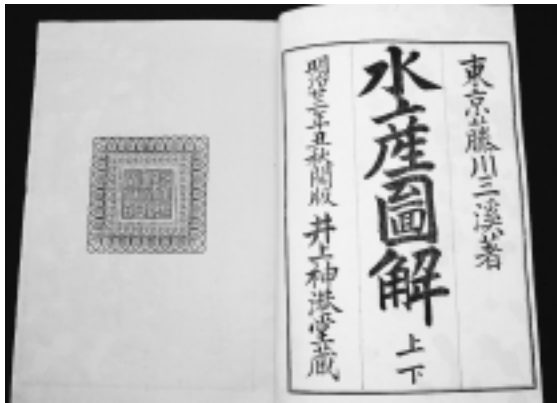 東京 藤川三溪著
水産圖解 上下
明治廿二年丑秋開版 井上神港堂蔵